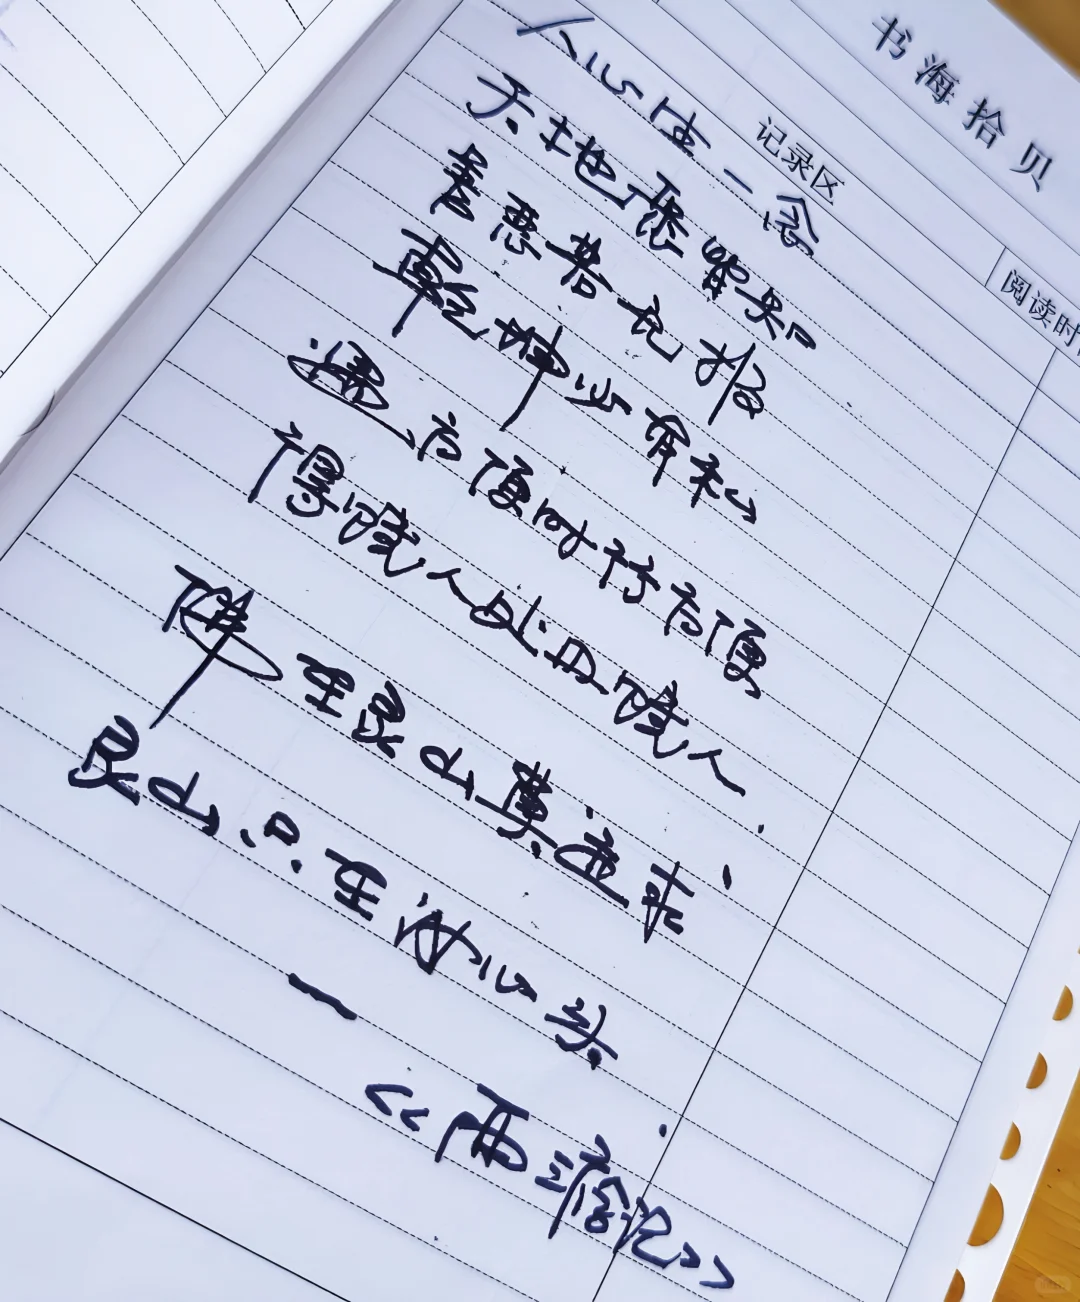 书海拾贝
记录区
阅读时
人心生一念
天地悉皆知
善恶若无报
乾坤必有私
遇方便时行方便
得饶人处且饶人
佛在灵山莫远求
灵山只在汝心头
—
《西游记》